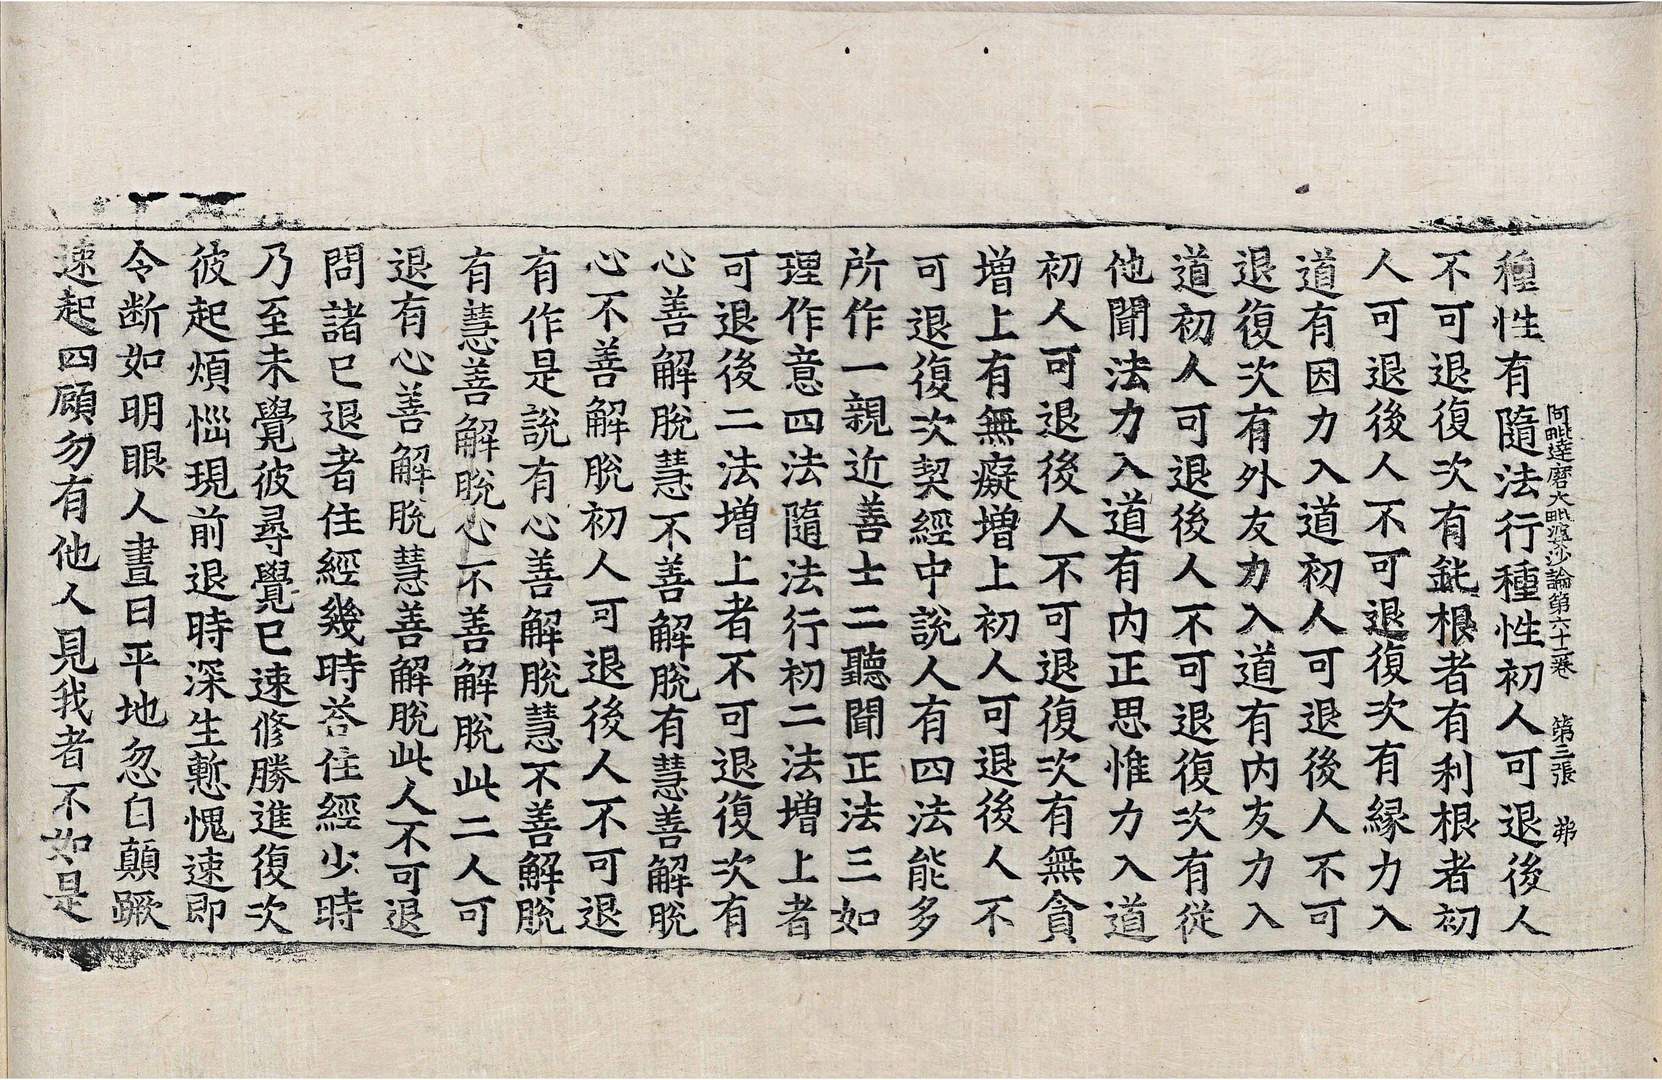 阿毗達磨大毗婆沙論第六十二卷　第三張　弗
種性有隨法行種性初人可退後人
不可退復次有鈍根者有利根者初
人可退後人不可退復次有緣力入
道有因力入道初人可退後人不可
退復次有外友力入道有內友力入
道初人可退後人不可退復次有從
他聞法力入道有內正思惟力入道
初人可退後人不可退復次有無貪
增上有無癡增上初人可退後人不
可退復次契經中說人有四法能多
所作一親近善士二聽聞正法三如
理作意四法隨法行初二法增上者
可退後二法增上者不可退復次有
心善解脫慧不善解脫有慧善解脫
心不善解脫初人可退後人不可退
有作是說有心善解脫慧不善解脫
有慧善解脫心不善解脫此二人可
退有心善解脫慧善解脫此人不可退
問諸已退者住經幾時荅住經少時
乃至未覺彼尋覺已速修勝進復次
彼起煩惱現前退時深生慙愧速即
令斷如明眼人晝日平地忽自顛蹶
速起四顧勿有他人見我者不如是